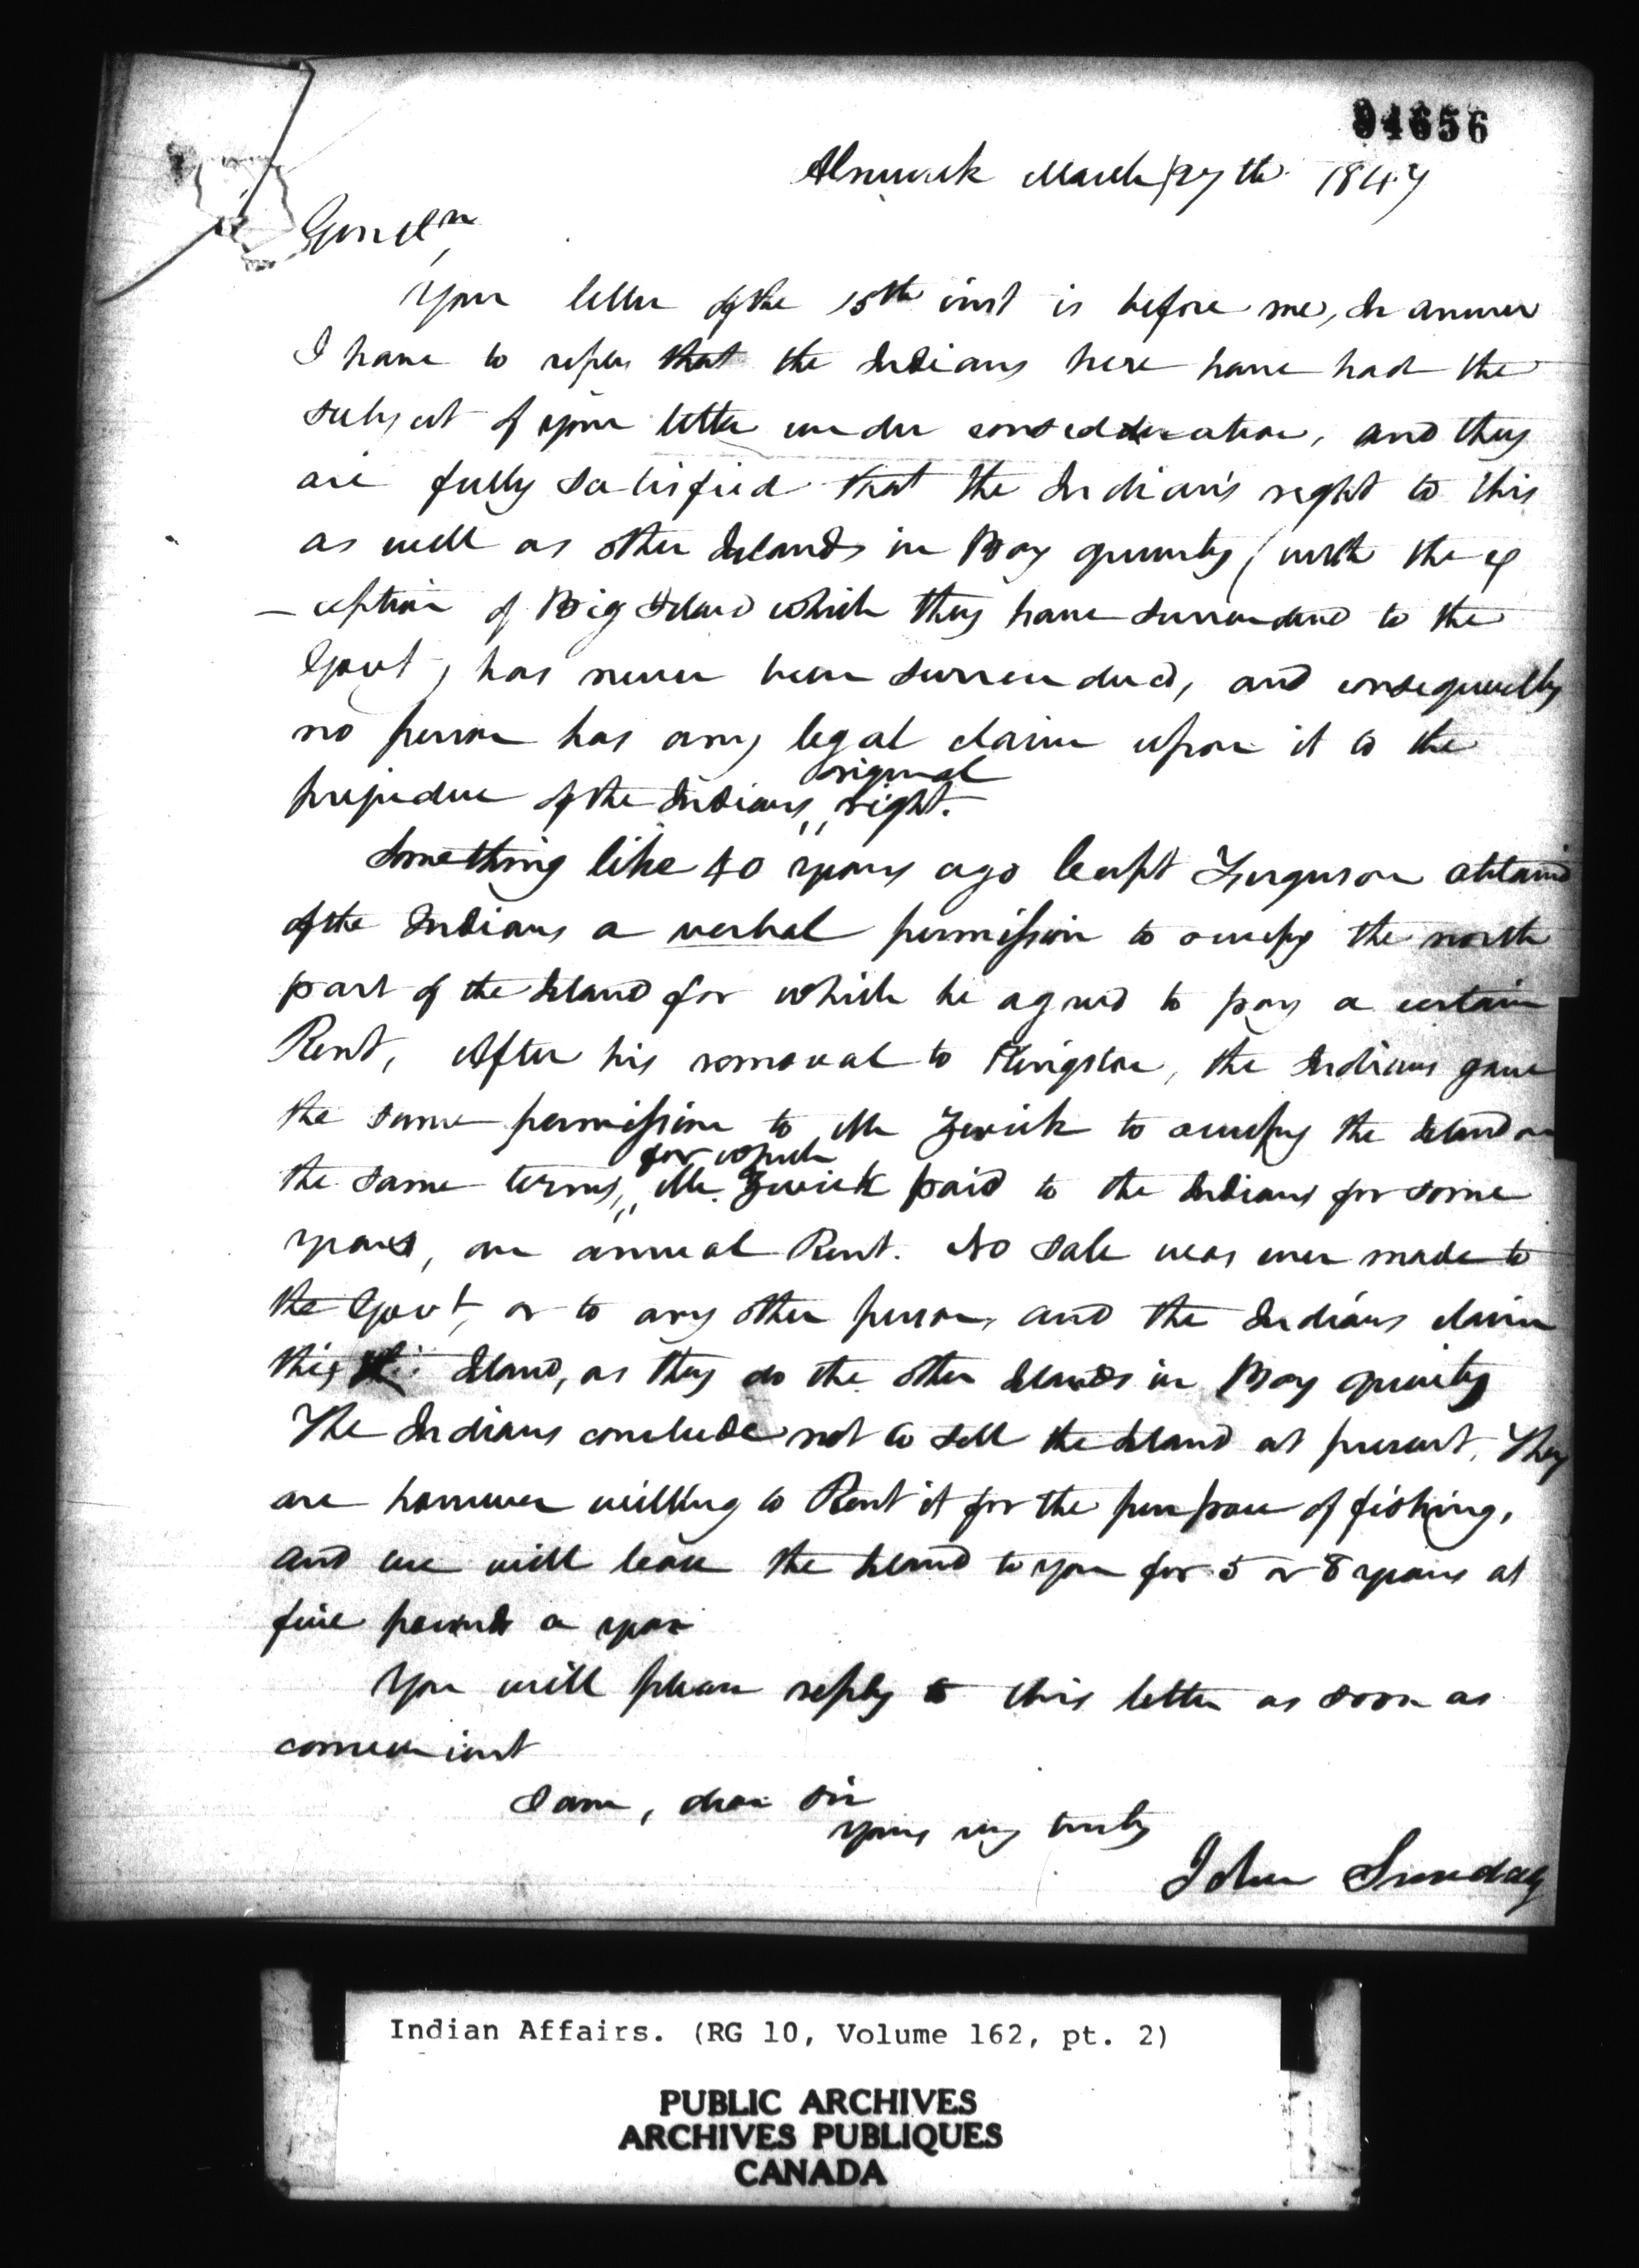 94656
Alnwick March 27th 1847
Gentln,
Your letter of the 15th inst is before me, In answer
I have to reply that the Indians here have had the
subject of your letter under considderation, and they
are fully satisfied that the Indian's right to this
as well as other Islands in Bay quinty (with the ex
-ception of Big Island which they have surrendered to the
Govt) has never been surrendered, and consequently
no person has any legal claim upon it to the
original
prejudice of the Indians,, right.
Something like 40 years ago Capt Ferguson obtained
of the Indians a verbal permission to occupy the north
part of the Island for which he agreed to pay a certain
Rent, After his removal to Kingston, the Indians gave
the same permission to Mr Zwick to occupy the Island on
for which
the same terms,,, Mr. Zwick paid to the Indians for some
years, an annual Rent. No sale was ever made to
the Govt, or to any other person, and the Indians claim
this Island, as they do the other Islands in Bay quinty
The Indians conclude not to sell the Island at present, They
are however willing to Rent it for the purpose of fishing,
and we will lease the Island to you for 5 or 8 years at
five pounds a year
You will please reply to this letter as soon as
convenient
I am, dear Sir
yours very truly
John Sunday
Indian Affairs. (RG 10, Volume 162, pt. 2)
PUBLIC ARCHIVES
ARCHIVES PUBLIQUES
CANADA